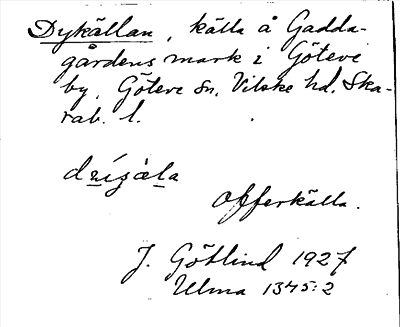 Dykällan, källa å Gadda-
gårdens mark i Göteve
by, Göteve sn, Vilske hd. Ska-
rab. l.
Offerkälla.
J. Götlind 1927
Ulma 1345:2